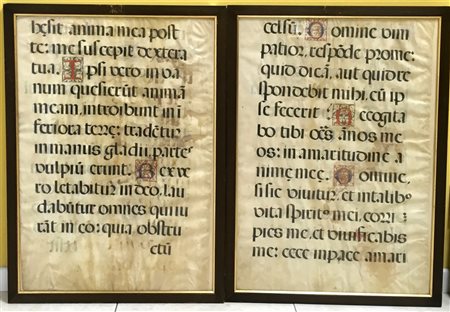 hesit anima mea post
te: me suscepit dextera
tua. Ipsi vero in va
num quesierūt animā
meam, introibunt in ī
feriora terrę: tradētur
in manus gladii, partes
vulpiū erunt. Rex ve
ro letabitur in deo, lau
dabūtur omnes qui iu
rāt in eo: quia obstru
ctū
celsū. Domine vim
patior, respōde pro me:
quid dicā, aut quid re
spondebit mihi, cū ip
se fecerit? Recogita
bo tibi oēs ānos me
os: in amaritudine a
nimę męę. Domine,
si sic vivitur, et in talibꝰ
vita spiritꝰ mei, corri
pies me, et vivificabis
me: ecce in pace amari